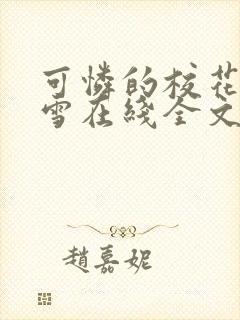 可憐的校花
雪在綫全文
趙嘉妮